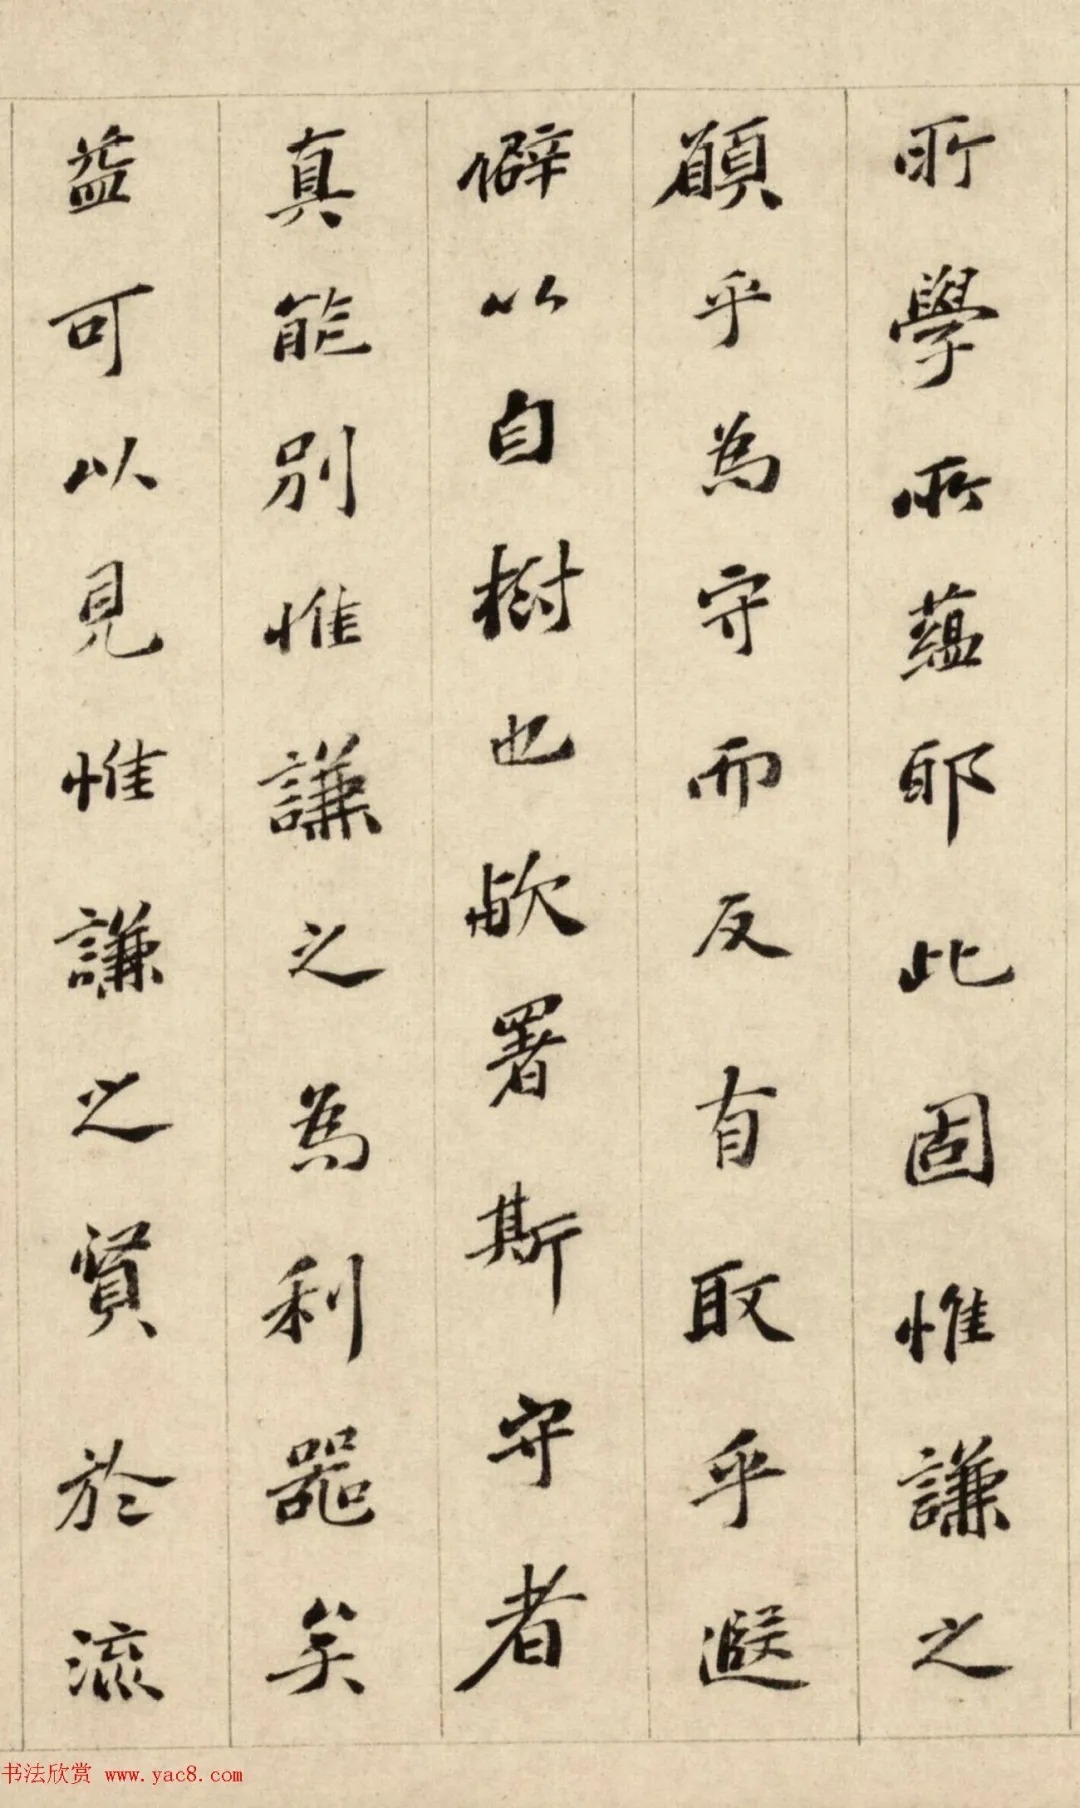 所學所蘊耶此固惟謙之
頋乎為守而反有取乎遐
僻以自樹也歟署斯守者
真能別惟謙之為利器矣
益可以見惟謙之賢於流
书法欣赏 www.yac8.com